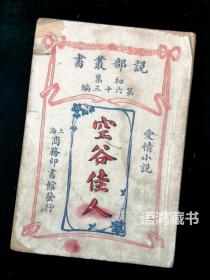 說部叢書
初集
第六十三編
愛情小說
空谷佳人
上海商務印書館發行
语鸿藏书